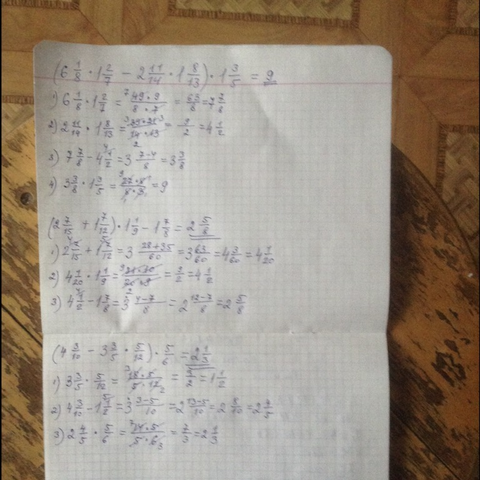 (6 1/8 · 1 2/7 − 2 11/14 · 1 8/13) · 1 3/5 = 9
1) 6 1/8 · 1 2/7 = 49·9/8·7 = 63/8 = 7 7/8
2) 2 11/14 · 1 8/13 = 39·21/14·13 = 9/2 = 4 1/2
3) 7 7/8 − 4 1/2 = 3 7−4/8 = 3 3/8
4) 3 3/8 · 1 3/5 = = 9
(2 7/15 + 1 7/12) · 1 1/9 − 1 7/8 = 2 5/8
1) 2 7/15 + 1 7/12 = 3 28+35/60 = 3 63/60 = 4 3/60 = 4 1/20
2) 4 1/20 · 1 1/9 = 81·10/20·9 = 9/2 = 4 1/2
3) 4 1/2 − 1 7/8 = 3 4−7/8 = 2 12−7/8 = 2 5/8
(4 3/10 − 3 3/5 · 5/12) · 5/6 = 2 1/3
1) 3 3/5 · 5/12 = 18·5/5·12 = 3/2 = 1 1/2
2) 4 3/10 − 1 1/2 = 3 3−5/10 = 2 13−5/10 = 2 8/10 = 2 4/5
3) 2 4/5 · 5/6 = 14·5/5·6 = 7/3 = 2 1/3